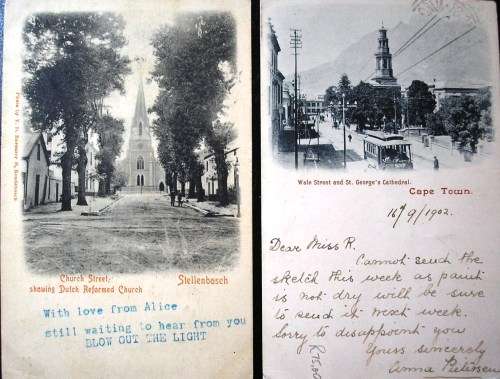 Church Street,
shewing Dutch Reformed Church
Stellenbosch
With love from Alice
still waiting to hear from you
BLOW OUT THE LIGHT
Wale Street and St. George's Cathedral.
Cape Town.
16/9/1902.
Dear Miss R.
Cannot send the
sketch this week as paint
is not dry will be sure
to send it next week.
Sorry to disappoint you
Yours sincerely
Anna Pietersen
R75.00